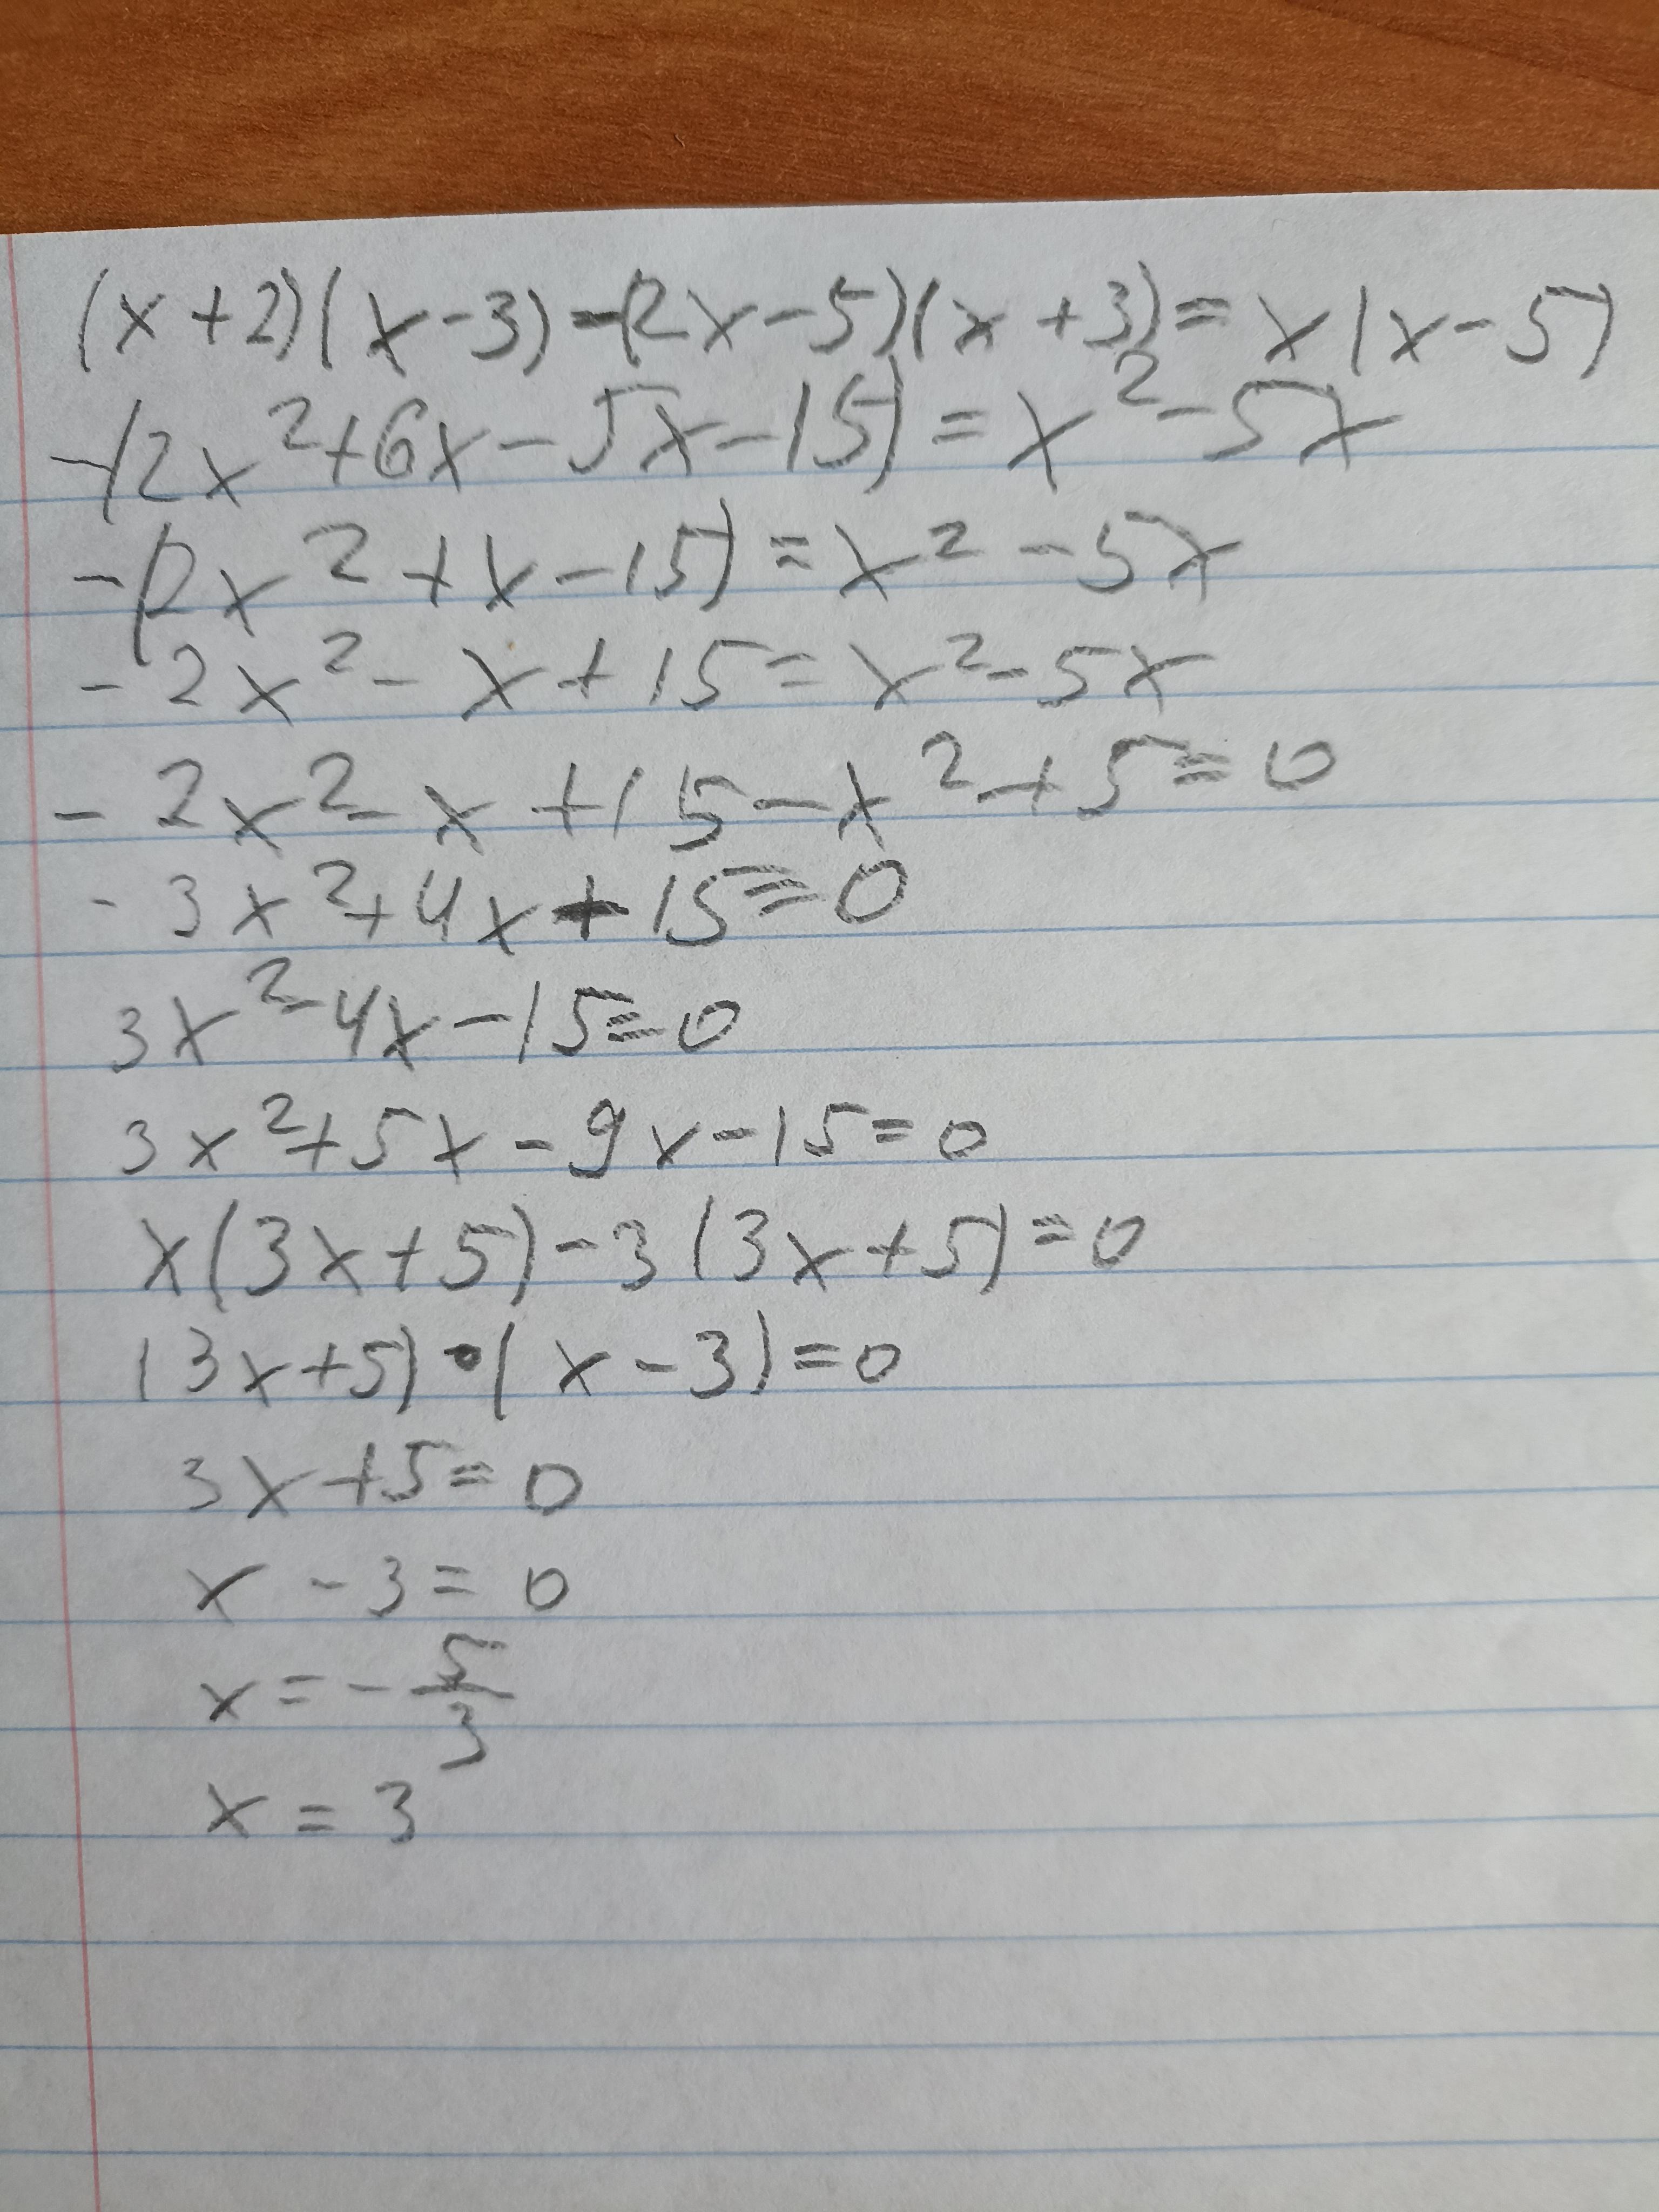 (x+2)(x-3)-(2x-5)(x+3)=x(x-5)
-(2x²+6x-5x-15)=x²-5x
-(2x²+x-15)=x²-5x
-2x²-x+15=x²-5x
-2x²-x+15-x²+5=0
-3x²+4x+15=0
3x²-4x-15=0
3x²+5x-9x-15=0
x(3x+5)-3(3x+5)=0
(3x+5)•(x-3)=0
3x+5=0
x-3=0
x=-5/3
x=3